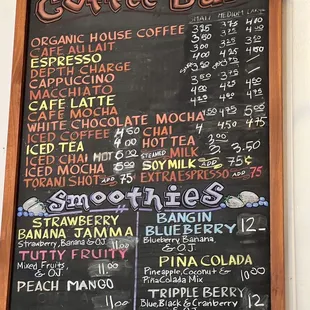 Coffee Bar
SMALL MEDIUM LARGE
ORGANIC HOUSE COFFEE 3.25 3.75 4.00
CAFE AU LAIT 3.50
ESPRESSO
DEPTH CHARGE
CAPPUCCINO
MACCHIATO
CAFE LATTE
CAFE MOCHA
WHITE CHOCOLATE MOCHA 4.50 4.75 5.00
ICED COFFEE 4.50 CHAI 4 4.50 4.75
ICED TEA HOT TEA 3
ICED CHAI STEAMED MILK 3 3.50
ICED MOCHA SOY MILK ADD 75¢
TORANI SHOT ADD .75 EXTRA ESPRESSO ADD .75
smoothies
STRAWBERRY
BANANA JAMMA
Strawberry, Banana & O.J. 11.00
TUTTY FRUITY
Mixed Fruits, & O.J. 11.00
PEACH MANGO
11.00
BANGIN
BLUEBERRY 12-
Blueberry Banana & O.J.
PINA COLADA
Pineapple, Coconut & Pina Colada Mix 10.00
TRIPPLE BERRY
Blue, Black & Cranberry & O.J. 12